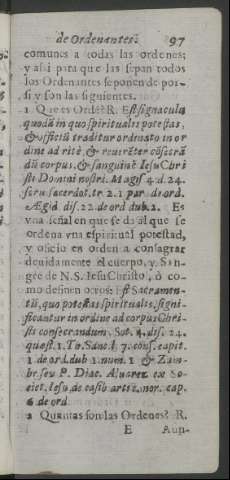 de Ordenantes. 97
comunes a todas las ordenes;
y assi para que las sepan todos
los Ordenantes se ponen de por
si y son las siguientes.
1 Que es Ordẽ? R. Est signaculũ
quodũ in quo spiritualis potestas,
& officiũ traditur ordinato in or
dine ad ritè, & reverẽter cõsecrã
dũ corpus, & sanguinẽ Iesu Chri
sti Domini nostri. Magis. 4. d. 24.
soru sacerdot. tr. 2. 1 par de ord.
Ægid dis. 22. de ord dub. 2. Es
vna señal en que se da al que se
ordena vna espiritual potestad,
y oficio en orden a consagrar
deuidamente el cuerpo, y San-
gre de N. S. Iesu Christo, ò co-
mo definen otros: Est Sacramen-
tũ, quo potestas spiritualis, signi-
ficantur in ordine ad corpus Chri-
sti consecrandum. Sot. 4. dis. 24.
quest. 1. To. Sanc. l. 7. cons. capit.
1 de ord. dub 1. num. 1 & Zam-
br. seu P. Diac. Aluarez ex So-
ciet. Iesu, de casib art. 2. nor. cap.
6 de ord
2 Quantas son las Ordenes? R.
E Aun-